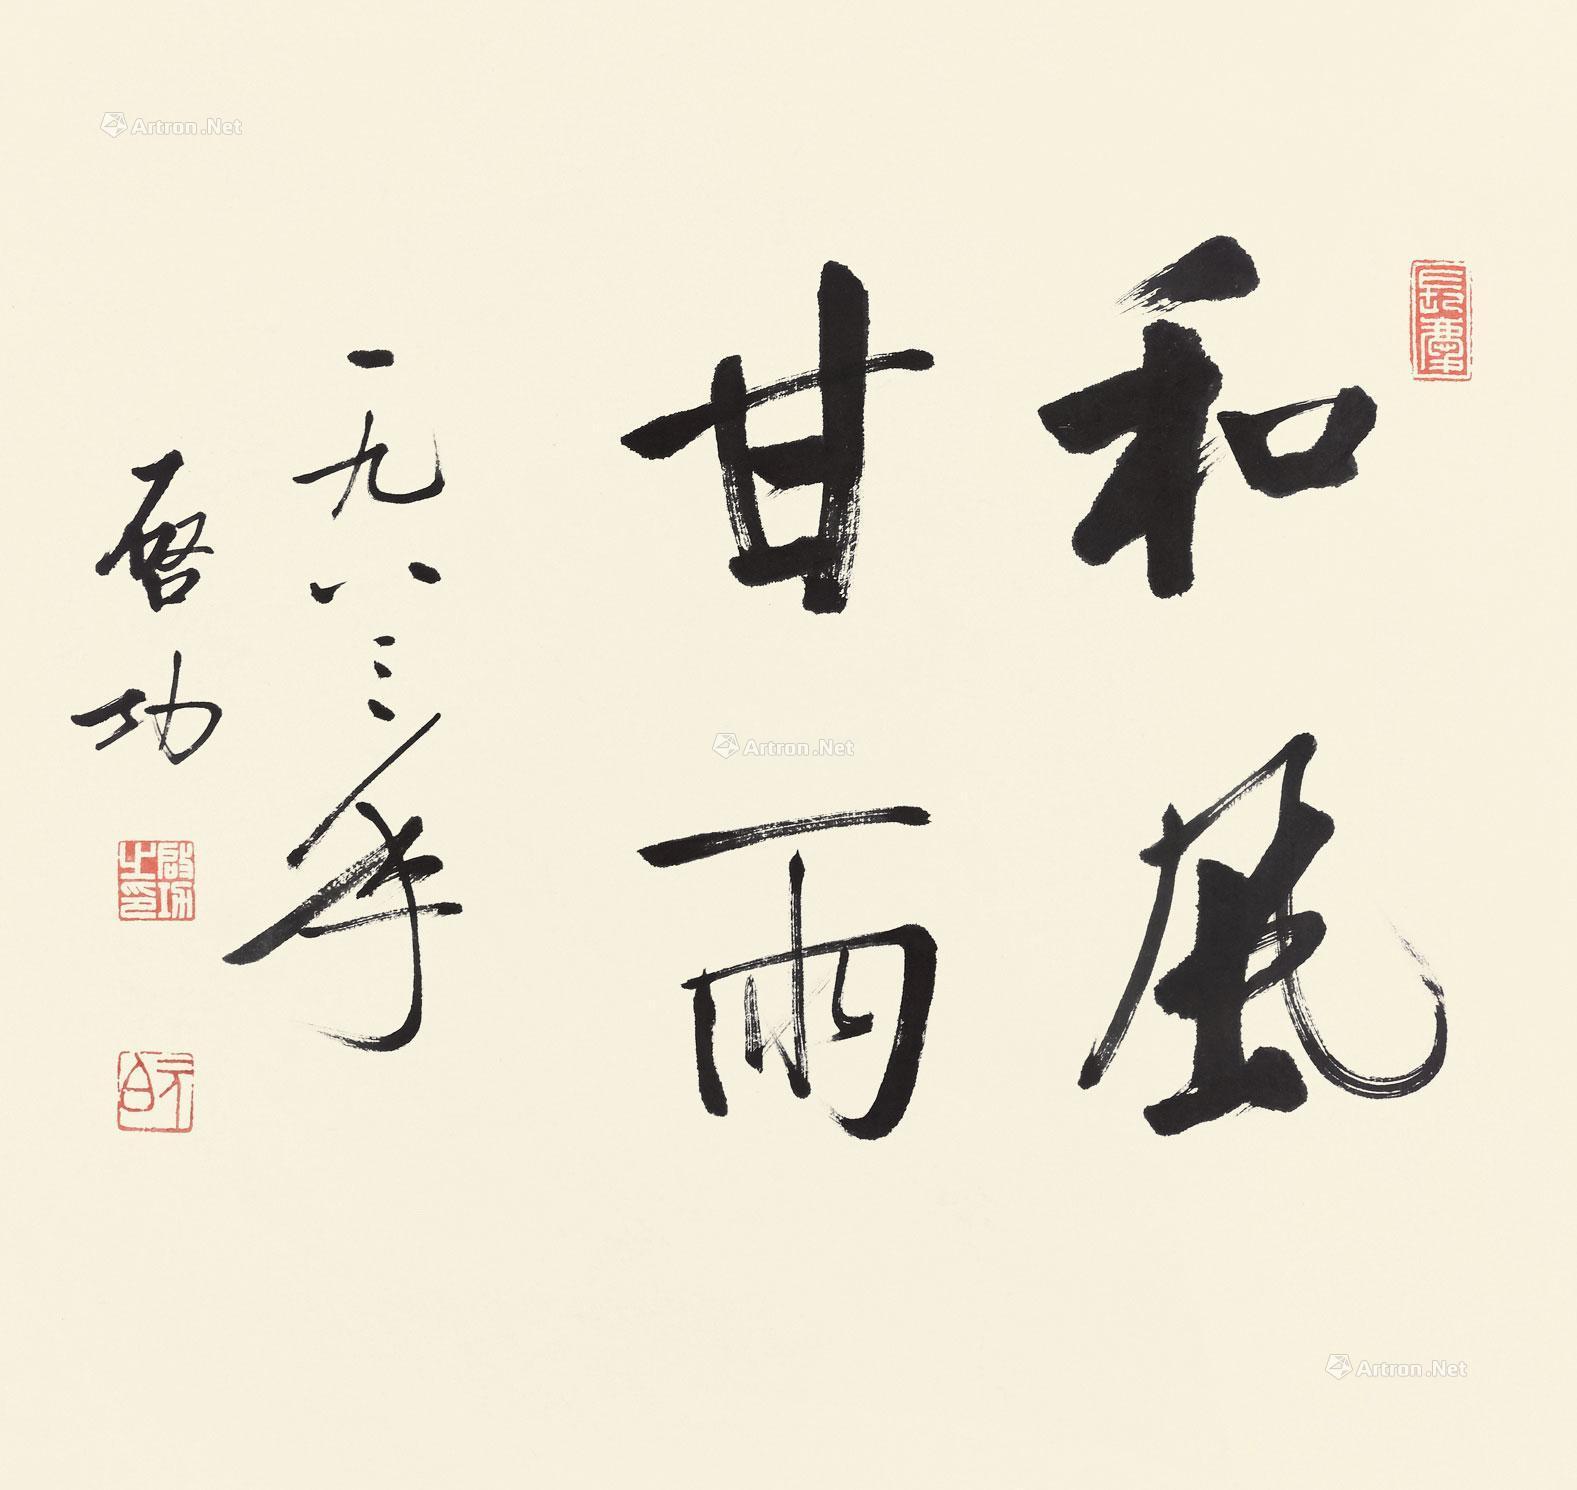 和風
甘雨
一九八三年
啓功
啟功之印
元白
Artron.Net
Artron.Net
Artron.Net